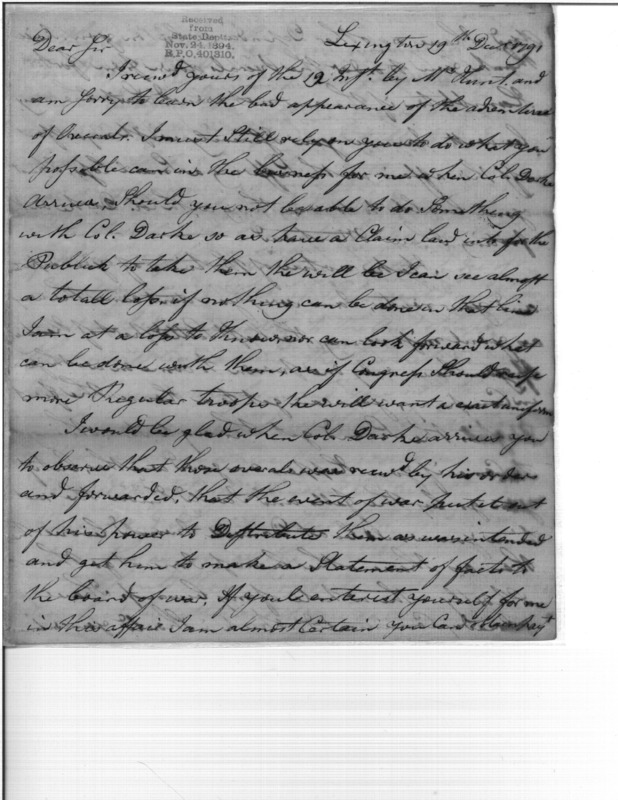 Received
from
State Dept.
Nov. 24, 1894.
R.P.O. 401310.
Dear Sir
Lexington 19th Decr 1791
I recvd yours of the 12 Inst. by Mr Hunt and
am Sorry to learn the bad appearance of the adventure
of Overals. I must Still rely on you to do what you
possable can in the business for me when Col. Darke
Arrives, Should you not be able to do Something
with Col. Darke so as have a Claim laid into for the
Publick to take them the will be I can see almost
a totall loss if nothing can be done in that line
I am at a loss to Know nor can look forward what
can be done with them, as if Congress Should raise
more Regular troops the will want a uniform
I would be glad when Col. Darke arrives you
to observe that those overals was recvd by his order
and forwarded, that the event of war put it out
of his power to Distribute them as was intended
and get him to make a Statement of facts to
the board of war. If youl enterest yourself for me
in this affair I am almost Certain you Can payt